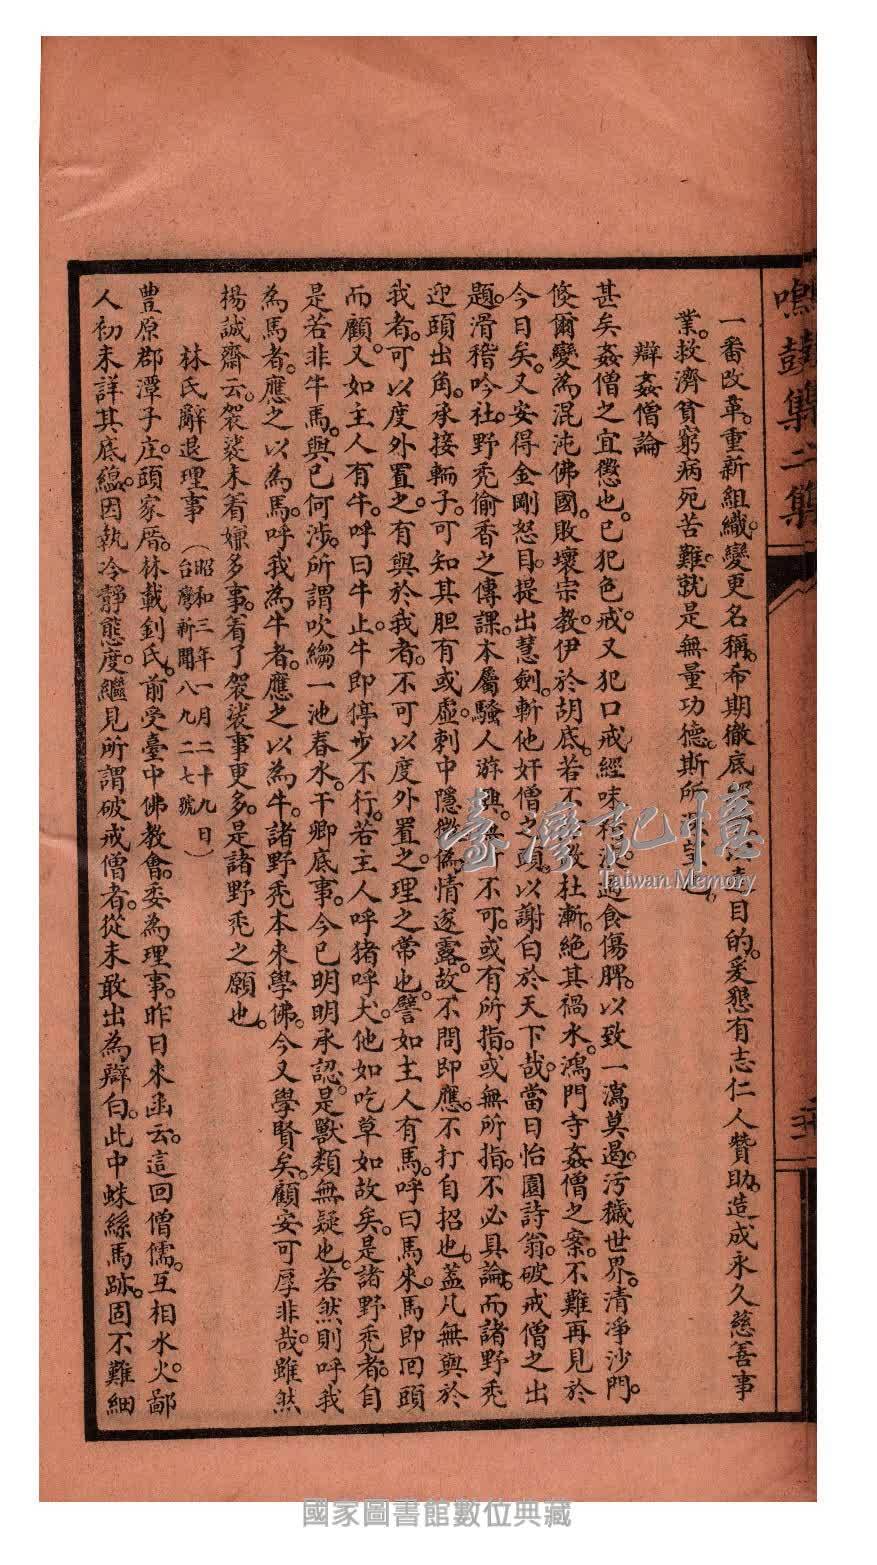 鳴鼓集二集
一番改革。重新組織。變更名稱。希期徹底達目的。爰懇有志仁人贊助。造成永久慈善事
業。救濟貧窮病死苦難。就是無量功德。斯所深望也。
辯姦僧論
甚矣姦僧之宜懲也。已犯色戒。又犯口戒。經味過食傷脾。以致一瀉莫遏。污穢世界。清淨沙門。
倏爾變為混沌佛國。敗壞宗教。伊於胡底。若不杜漸。絕其禍水。鴻門寺姦僧之案。不難再見於
今日矣。又安得金剛怒目。提出慧劍。斬他奸僧之頭。以謝白於天下哉。當日怡園詩翁。破戒僧之出
題。滑稽吟社。野禿偷香之傳課。本屬騷人游興。無不可。或有所指。或無所指。不必具論。而諸野禿
迎頭出角。承接輀子。可知其胆有或虛。刺中隱微。偽情遂露。故不問即應。不打自招也。蓋凡無與於
我者。可以度外置之。有與於我者。不可以度外置之。理之常也。譬如主人有馬。呼曰馬來。馬即回頭
而顧。又如主人有牛。呼曰牛止。牛即停步不行。若主人呼猪呼犬。他如吃草如故矣。是諸野禿者。自
是若非牛馬。與已何涉。所謂吹縐一池春水。干卿底事。今已明明承認。是獸類無疑也。若然則呼我
為馬者。應之以為馬。呼我為牛者。應之以為牛。諸野禿本來學佛。今又學賢矣。顧安可厚非哉。雖然
楊誠齋云。袈裟未着嫌多事。着了袈裟事更多。是諸野禿之願也。
林氏辭退理事（昭和三年一月二十九日）
（台灣新聞八九二七號）
豊原郡潭子庄。頭家厝。林載釗氏。前受臺中佛教會。委為理事。昨日來函云。這回僧儒。互相水火。鄙
人初未詳其底縕。因執冷靜態度。繼見所謂破戒僧者。從未敢出為辯白。此中蛛絲馬跡。固不難細
臺灣記憶
Taiwan Memory
國家圖書館數位典藏